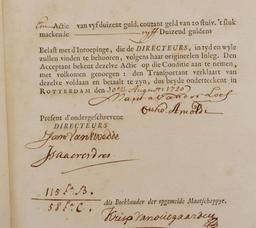 Een Actie van vyf duizent guld. courant geld van 20 stuiv. 't stuk
mackende vyff Duizend guldens
Belast met d'Intoepinge, die de DIRECTEURS, in tyd en wyle
zullen vinden te behooren, volgens haar origineelen Inleg. Den
Acceptant bekent dezelve Actie op die Conditie aan te nemen,
met volkomen genoegen : den Transportant verklaart van
dezelve voldaan en betaalt te zyn, dus beyde onderteekent in
ROTTERDAM den 30en Augusti 1720
Arnoldi
Present d'ondergeschrevene
DIRECTEURS
115 fo B.
58 fo C.
Als Boekhouder der opgemelde Maatschappye.